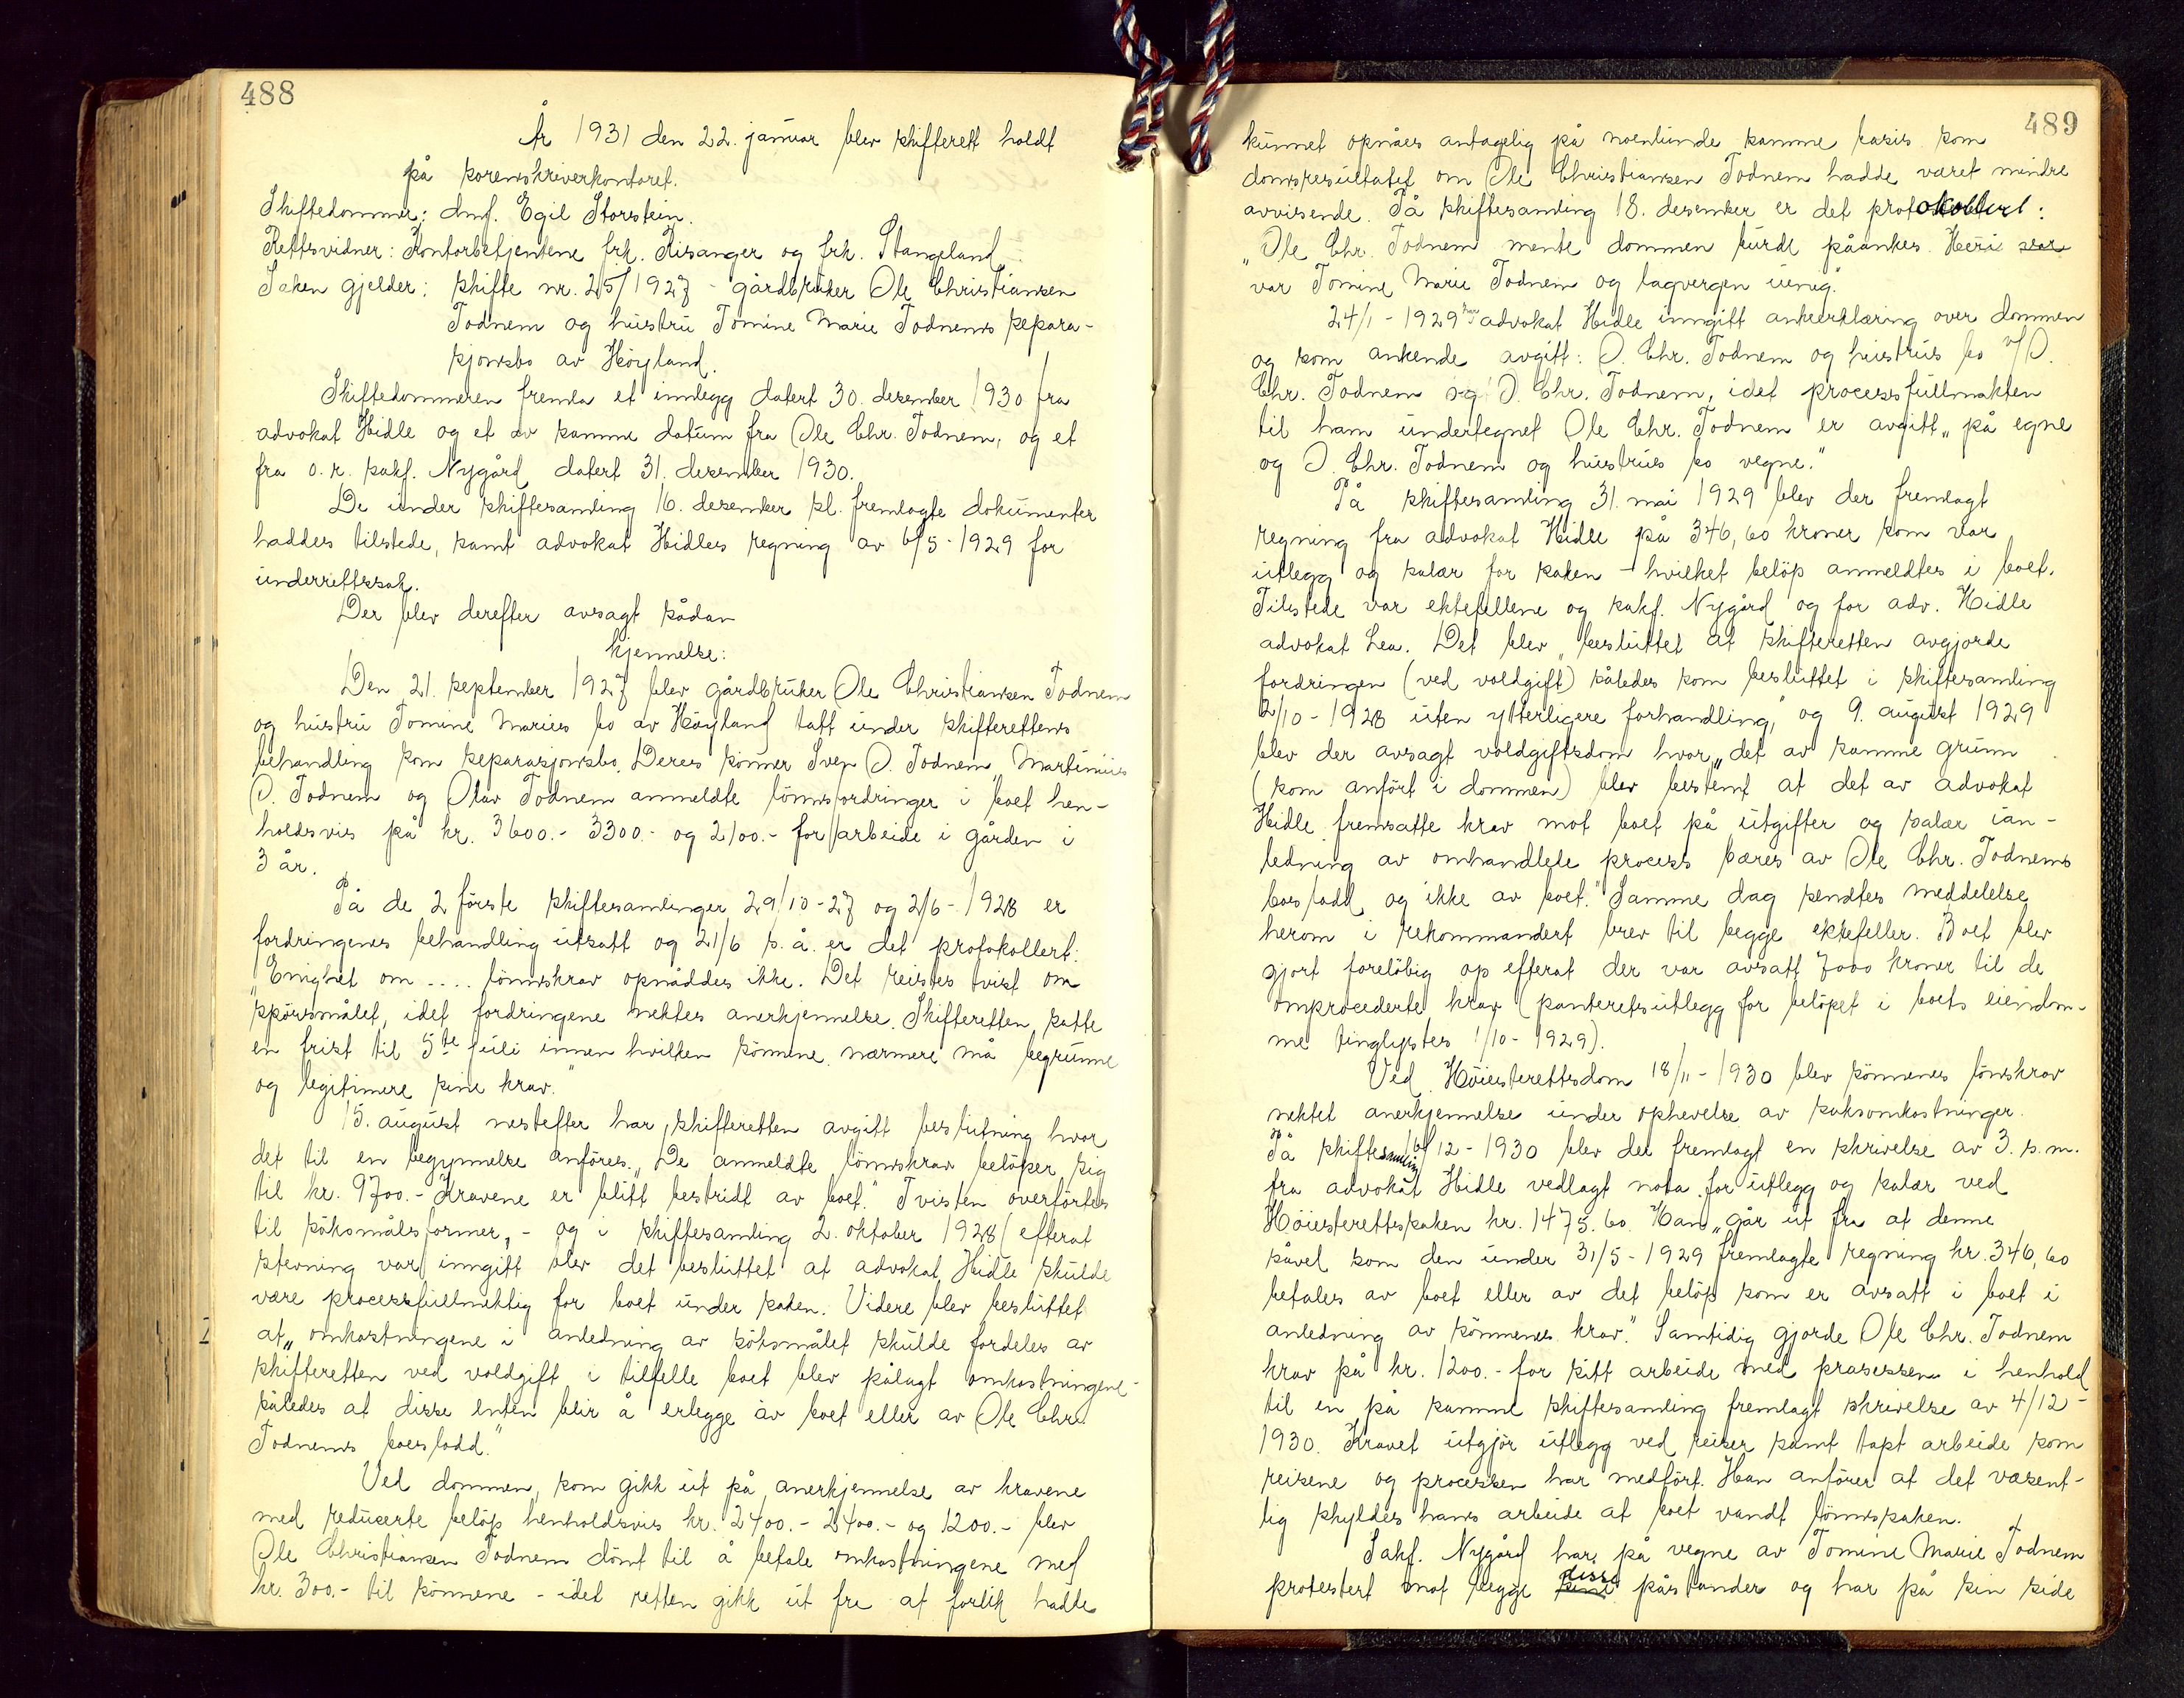 488
År 1931 den 22. januar blev skifterett holdt
på sorenskriverkontoret.
Skiftedommer: dmf. Egil Storstein.
Rettsvidner: Kontorbetjentene frk. Risanger og frk. Stangeland
Saken gjelder: skifte nr. 25/1927 - gårdbruker Ole Christiansen
Todnem og hustru Tomine Marie Todnems separa-
sjonsbo av Höyland.
Skiftedommeren fremla et innlegg datert 30. desember 1930 fra
advokat Hidle og et av samme datum fra Ole Chr. Todnem, og et
fra o.r. sakf. Nygård datert 31. desember 1930.
De under skiftesamling 16. desember sl. fremlagte dokumenter
haddes tilstede, samt advokat Hidles regning av 6/5-1929 for
underrettssak.
Der blev derefter avsagt sådan
kjennelse:
Den 21. september 1927 blev gårdbruker Ole Christiansen Todnem
og hustru Tomine Maries bo av Höyland tatt under skifterettens
behandling som separasjonsbo. Deres sönner Sven O. Todnem, Martinius
O. Todnem og Olav Todnem anmeldte lönnsfordringer i boet hen-
holdsvis på kr. 3600.- 3300.- og 2100.- for arbeide i gården i
3 år.
På de 2 förste skiftesamlinger 29/10-27 og 2/6-1928 er
fordringenes behandling utsatt og 21/6 s.å. er det protokollert:
"Enighet om .... lönnskrav opnåddes ikke. Det reistes tvist om
spörsmålet, idet fordringene nektes anerkjennelse. Skifteretten satte
en frist til 5te juli innen hvilken sönnene nærmere må begrunne
og legitimere sine krav."
15. august nestefter har skifteretten avgitt beslutning hvor
det til en begynnelse anföres: "De anmeldte lönnskrav belöper sig
til kr. 9700.- Kravene er blitt bestridt av boet." Tvisten overförtes
til söksmålsformer, - og i skiftesamling 2. oktober 1928 (efterat
stevning var inngitt blev det besluttet at advokat Hidle skulde
være processfullmektig for boet under saken. Videre blev besluttet
at "omkostningene i anledning av söksmålet skulde fordeles av
skifteretten ved voldgift i tilfelle boet blev pålagt omkostningene -
således at disse enten blir å erlegge av boet eller av Ole Chr.
Todnems boeslodd."
Ved dommen, som gikk ut på anerkjennelse av kravene
med reduserte belöp henholdsvis kr. 2400.- 2400.- og 1200.- blev
Ole Christiansen Todnem dömt til å betale omkostningene med
kr. 300.- til sönnene - idet retten gikk ut fra at forlik hadde
489
kunnet opnåes antagelig på noenlunde samme basis som
domsresultatet om Ole Christiansen Todnem hadde været mindre
avvisende. På skiftesamling 18. desember er det protokollert:
"Ole Chr. Todnem mente dommen burde påankes. Heri
var Tomine Marie Todnem og lagvergen uenig."
24/1-1929 har advokat Hidle inngitt ankeerklæring over dommen
og som ankende avgitt: O. Chr. Todnem og hustrus bo v/O.
Chr. Todnem og O. Chr. Todnem, idet processfullmakten
til ham undertegnet Ole Chr. Todnem er avgitt "på egne
og O. Chr. Todnem og hustrus bo vegne."
På skiftesamling 31. mai 1929 blev der fremlagt
regning fra advokat Hidle på 346,60 kroner som var
utlegg og salær for saken - hvilket belöp anmeldtes i boet.
Tilstede var ektefellene og sakf. Nygård og for adv. Hidle
advokat Lea. Det blev "besluttet at skifteretten avgjorde
fordringen (ved voldgift) således som besluttet i skiftesamling
2/10-1928 uten ytterligere forhandling," og 9. august 1929
blev der avsagt voldgiftsdom hvor "det av samme grunn
(som anfört i dommen) blev bestemt at det av advokat
Hidle fremsatte krav mot boet på utgifter og salær ian-
ledning av omhandlete process bæres av Ole Chr. Todnems
boeslodd og ikke av boet." Samme dag sendtes meddelelse
herom i rekommandert brev til begge ektefeller. Boet blev
gjort forelöbig op efterat der var avsatt 7000 kroner til de
omprocederte krav (panteretsutlegg for belöpet i boets eiendom-
me tinglystes 1/10-1929).
Ved Höiesterettsdom 18/11-1930 blev sönnenes lönskrav
nektet anerkjennelse under ophevelse av saksomkostninger.
På skiftesamling 16/12-1930 blev det fremlagt en skrivelse av 3. s.m.
fra advokat Hidle vedlagt nota for utlegg og salær ved
Höiesterettssaken kr. 1475.60. Han "går ut fra at denne
såvel som den under 31/5-1929 fremlagte regning kr. 346,60
betales av boet eller av det belöp som er avsatt i boet i
anledning av sönnenes krav." Samtidig gjorde Ole Chr. Todnem
krav på kr. 1200.- for sitt arbeide med prosessen i henhold
til en på samme skiftesamling fremlagt skrivelse av 4/12-
1930. Kravet utgjör utlegg ved reiser samt tapt arbeide som
reisene og processen har medfört. Han anförer at det væsent-
lig skyldes hans arbeide at boet vandt lönnssaken.
Sakf. Nygård har på vegne av Tomine Marie Todnem
protestert mot begge sine disse påstander og har på sin side